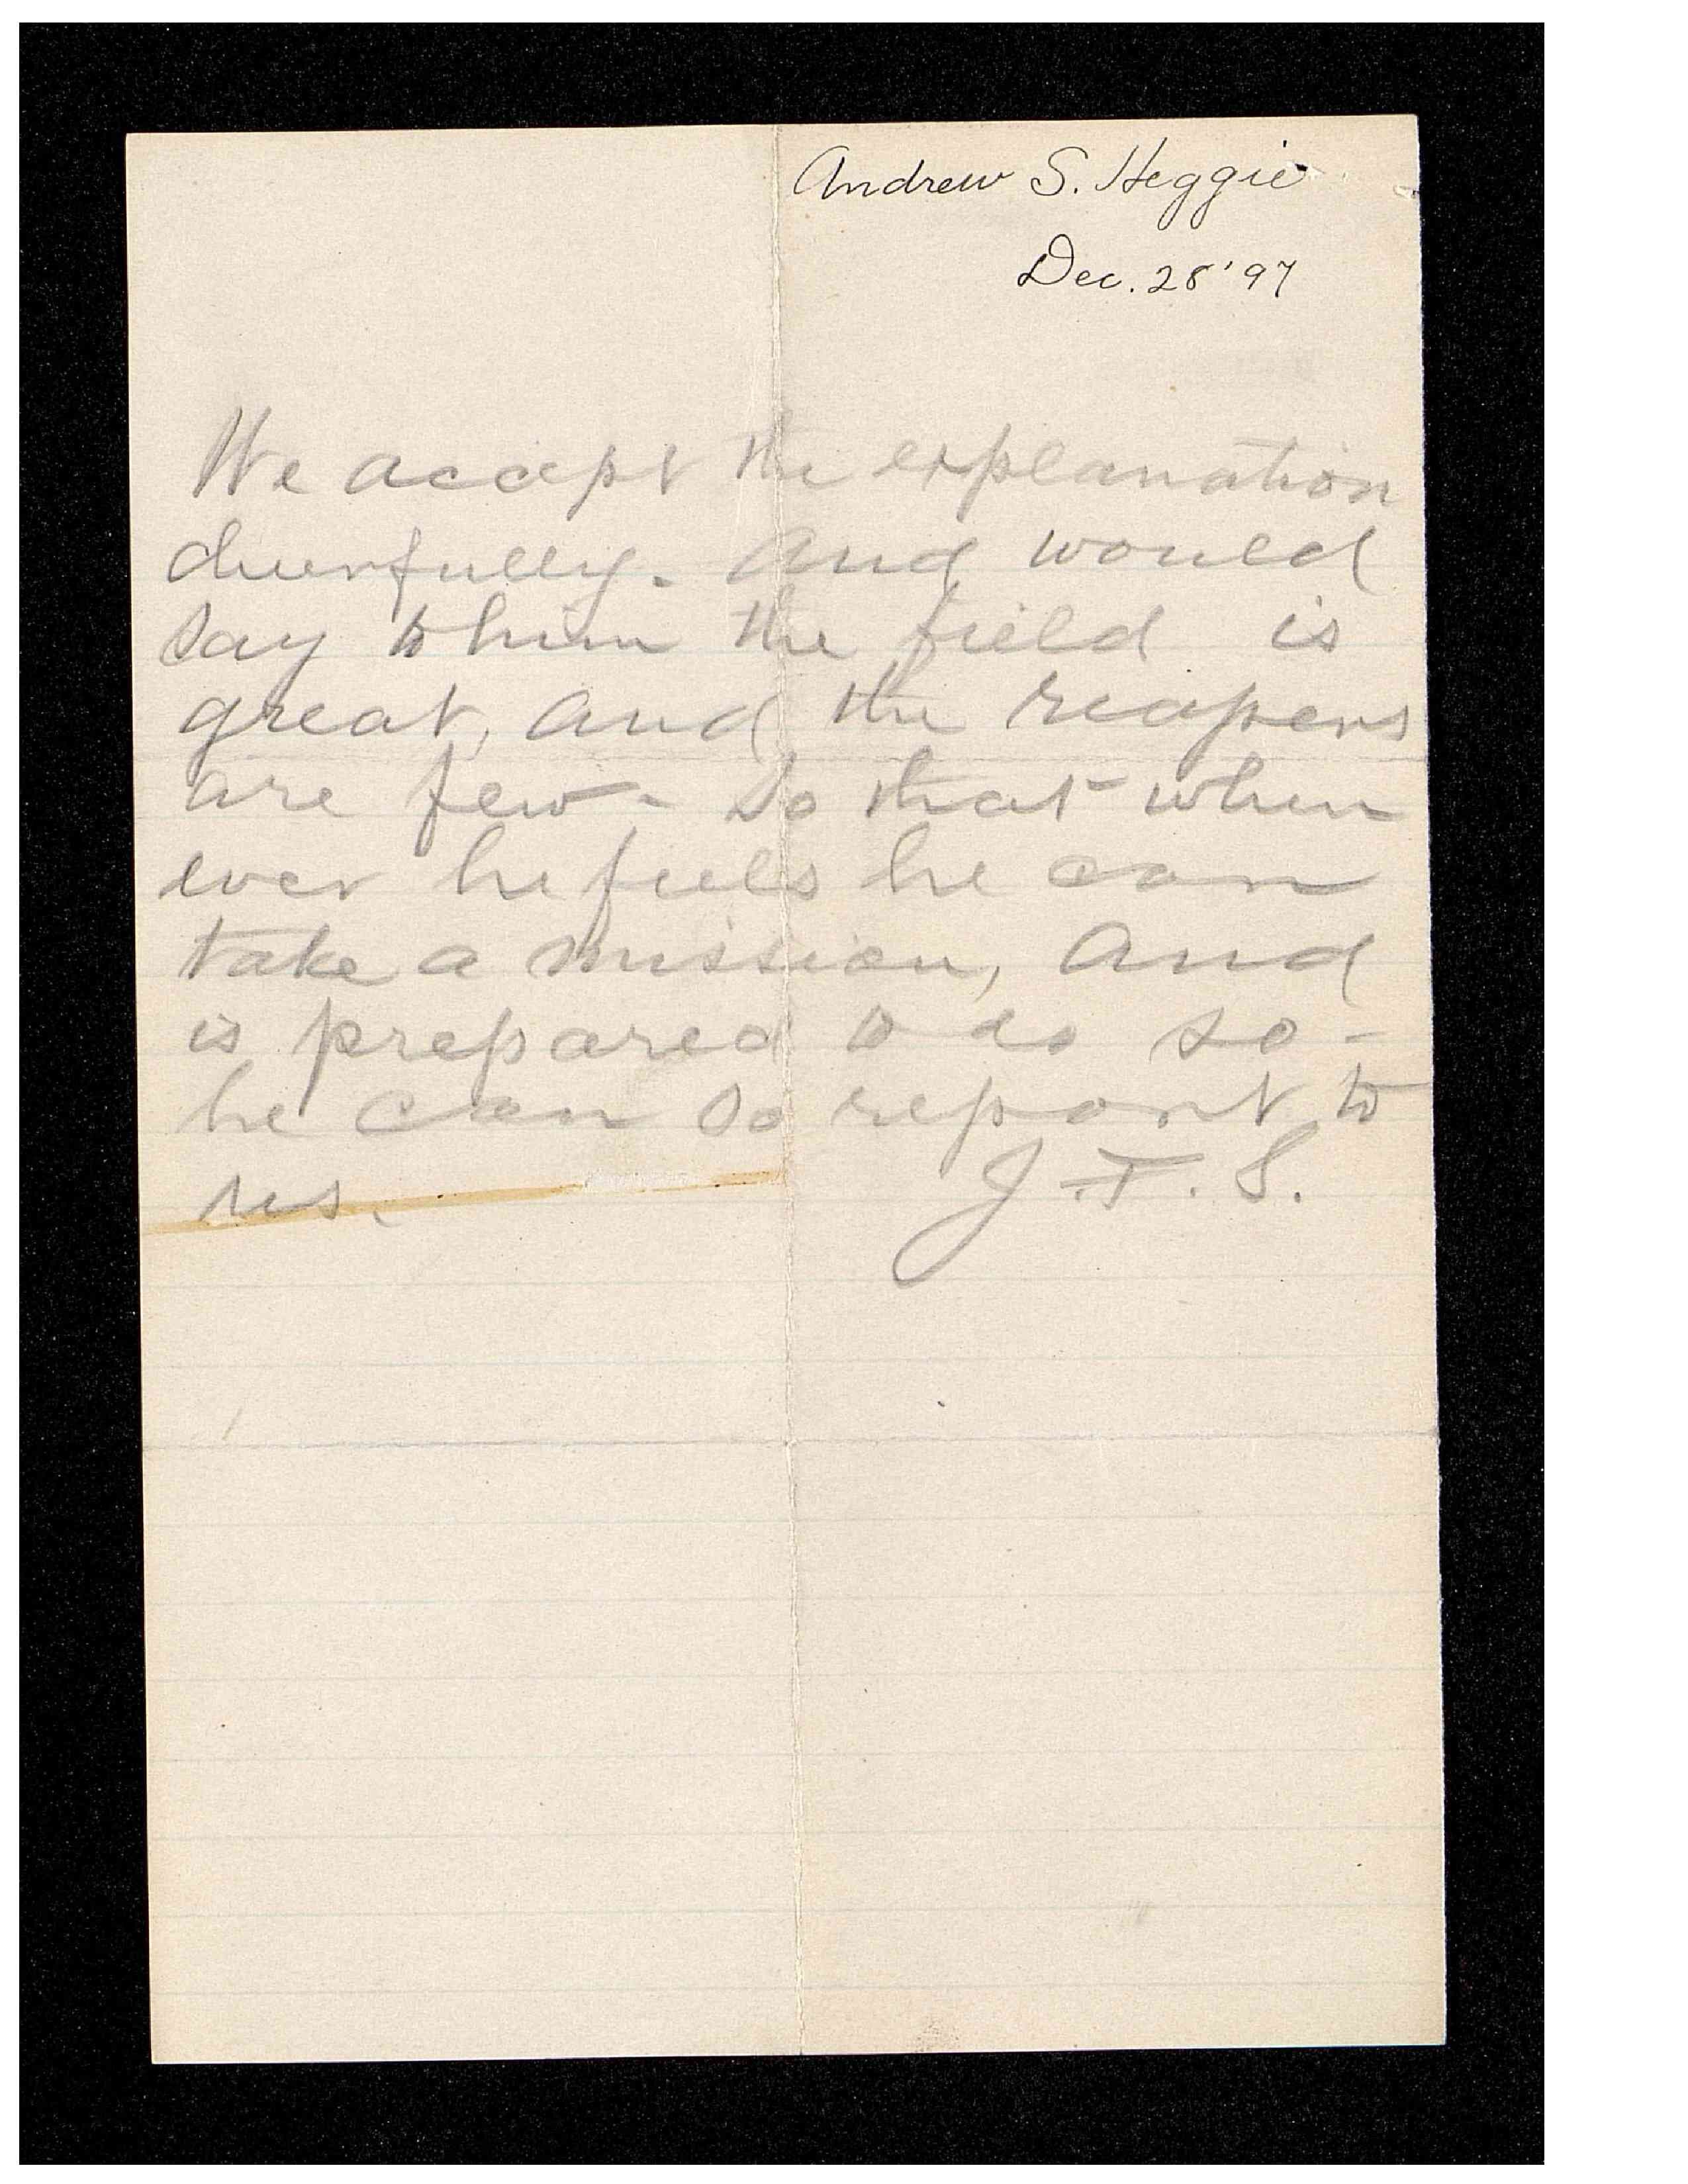 Andrew S. Heggie
Dec. 28 '97
We accept the explanation
cheerfully. and would
say to him the field is
great, and the reapers
are few - so that when
ever he feels he can
take a mission, and
is prepared to do so -
he can so report to
us.
J. F. S.